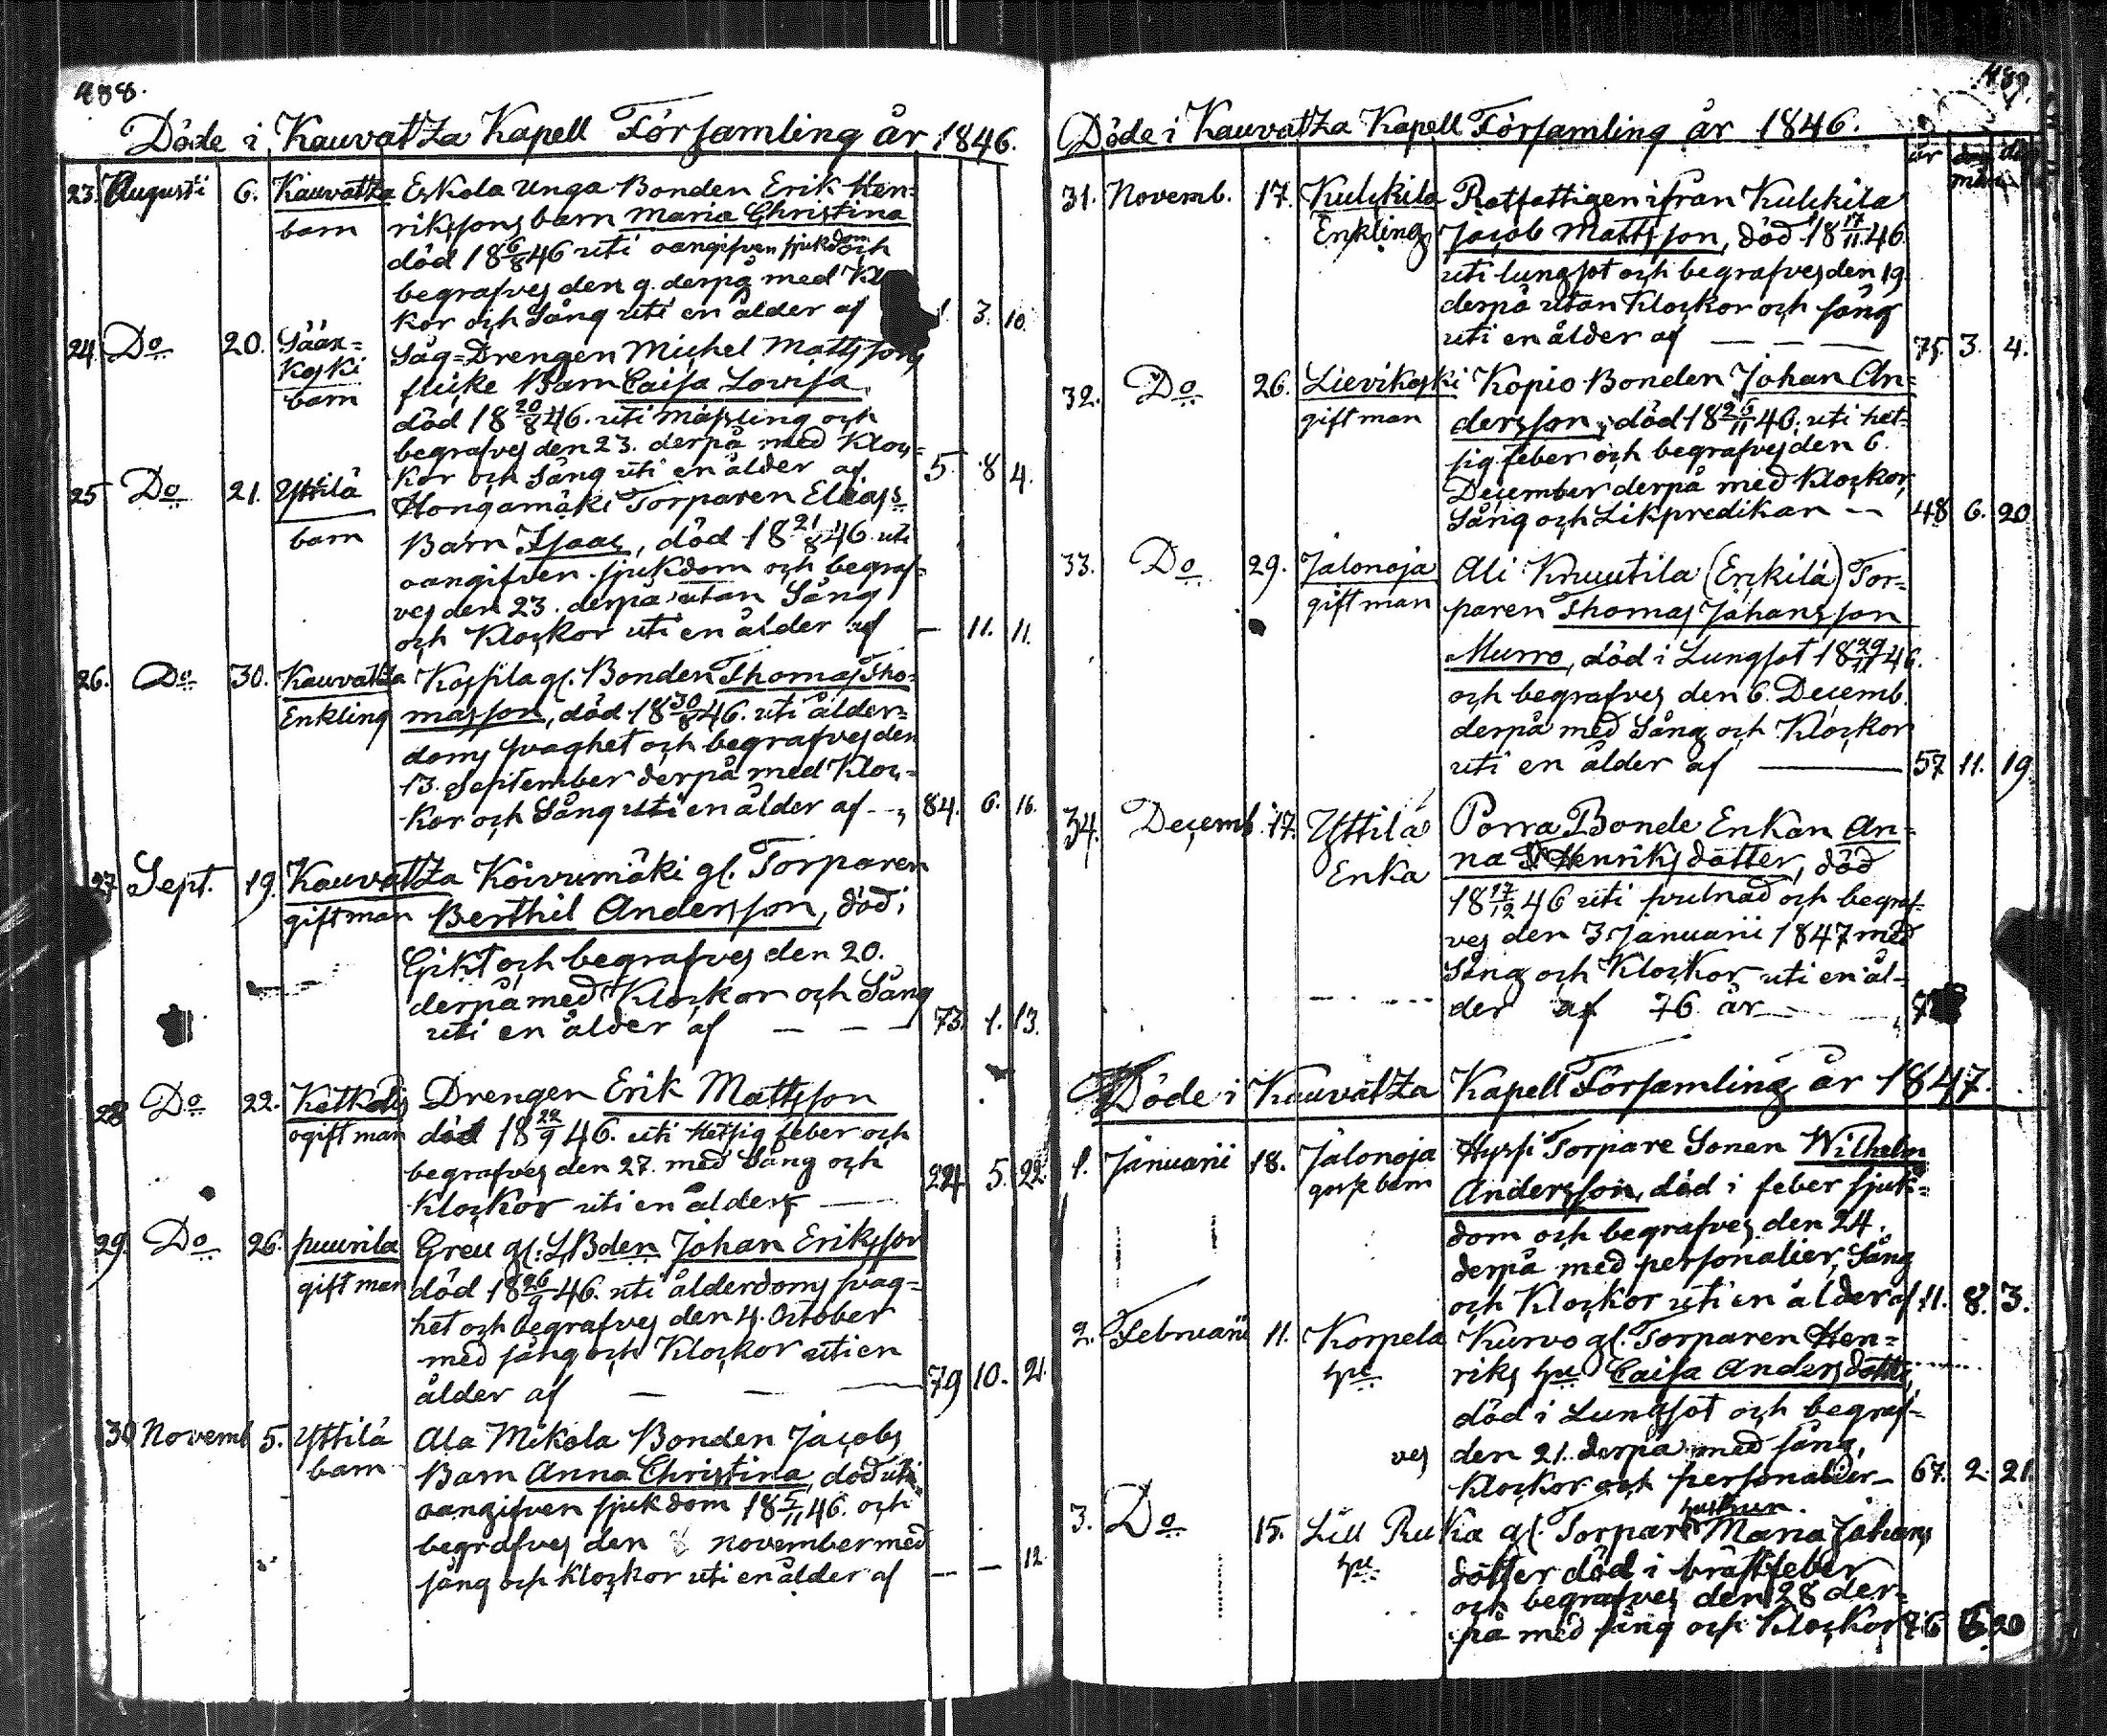 488.
Döde i Kauvatza Kapell Församling år 1846.
23. Augusti 6. Kauvatza Eskola Unga Bonden Erik Hen=
barn rikssons barn Maria Christina
död 18 6/8 46 uti oangifven sjukdom och
begrafves den 9. derpå med Kl
kor och Sång uti en ålder af 1 3. 10.
24. Do 20. Sääx= Såg=Drengen Michel Mattssons
koski flicke Barn Caisa Lovisa,
barn död 18 20/8 46. uti mässling och
begrafves den 23. derpå med Kloc=
kor och Sång uti en ålder af 5. 8 4.
25 Do 21. Yttilä Hongamäki Torparen Eliass
barn Barn Isaac, död 18 21/8 46. uti
oangifven sjukdom och begraf=
ves den 23. derpå utan Sång
och Klockor uti en ålder af — 11. 11.
26. Do 30. Kauvatza Kossila gl. Bonden Thomas Tho=
Enkling masson, död 18 30/8 46. uti ålder=
doms svaghet och begrafves den
13. September derpå med Kloc=
kor och Sång uti en ålder af - 84. 6. 16.
27 Sept. 19. Kauvatza Koivumäki gl. Torparen
gift man Berthil Andersson, död i
Gikt och begrafves den 20.
derpå med Klockor och Sång
uti en ålder af — — — 73. 1. 13.
28 Do 22. Drengen Erik Mattsson
ogift man död 18 22/9 46. uti Hetsig feber och
begrafves den 27. med Sång och 24 5. 22.
Klockor uti en ålder —
29. Do 26. puurila Greu gl: LBden Johan Eriksson
gift man död 18 26/9 46. uti ålderdoms svag=
het och begrafves den 4. October
med sång och Klockor uti en
ålder af — — — 79 10. 2.
30 Novemb 5. Yttilä Ala Mikola Bonden Jacobs
barn Barn Anna Christina, död uti
oangifven sjukdom 18 5/11 46. och
begrafves den 8 november med
sång och Klockor uti en ålder af — — 12.
489.
Döde i Kauvatza Kapell Församling år 1846.
år
31. Novemb. 17. Kulckila Rotfattigen ifrån Kulckila
Enkling Jacob Mattsson, död 18 17/11 46.
uti lungsot och begrafves den 19.
derpå utan Klockor och sång
uti en ålder af — — — 75. 3. 4.
32. Do 26. Lievikoski Kopio Bonden Johan An=
gift man dersson, död 18 26/11 46. uti het=
sig feber och begrafves den 6.
December derpå med Klockor,
Sång och Likpredikan — 48 6. 20
33. Do 29. Jalonoja Ali Knuutila (Erckilä) Tor=
gift man paren Thomas Johansson
Murro, död i Lungsot 18 29/11 46.
och begrafves den 6. Decemb.
derpå med Sång och Klockor
uti en ålder af — 57 11. 19.
34. Decemb. 17. Yttilä Porra Bonde Enkan An=
Enka na Henriksdotter, död
18 17/12 46 uti svulnad och begraf=
ves den 3. Januarii 1847 med
Sång och Klockor uti en ål=
der af 76 år — 7
Döde i Kauvatza Kapell Församling år 1847.
1. Januarii 18. Jalonoja Hyssi Torpare Sonen Wilhelm
gosse barn Andersson, död i feber sjuk=
dom och begrafves den 24.
derpå med personalier, Sång
och Klockor uti en ålder af 11. 8. 3.
2. Februarii 11. Korpela Kurvo gl. Torparen Hen=
hu riks hu Caisa Andersdotter,
död i Lungsot och begraf=
ves den 21. derpå med sång,
Klockor och personalier — 67. 2. 21.
3. Do 15. Lill Ruka gl. Torpare hustrun Maria Johans
hu dotter död i bröstfeber
och begrafves den 28 der=
på med sång och Klockor 76 20